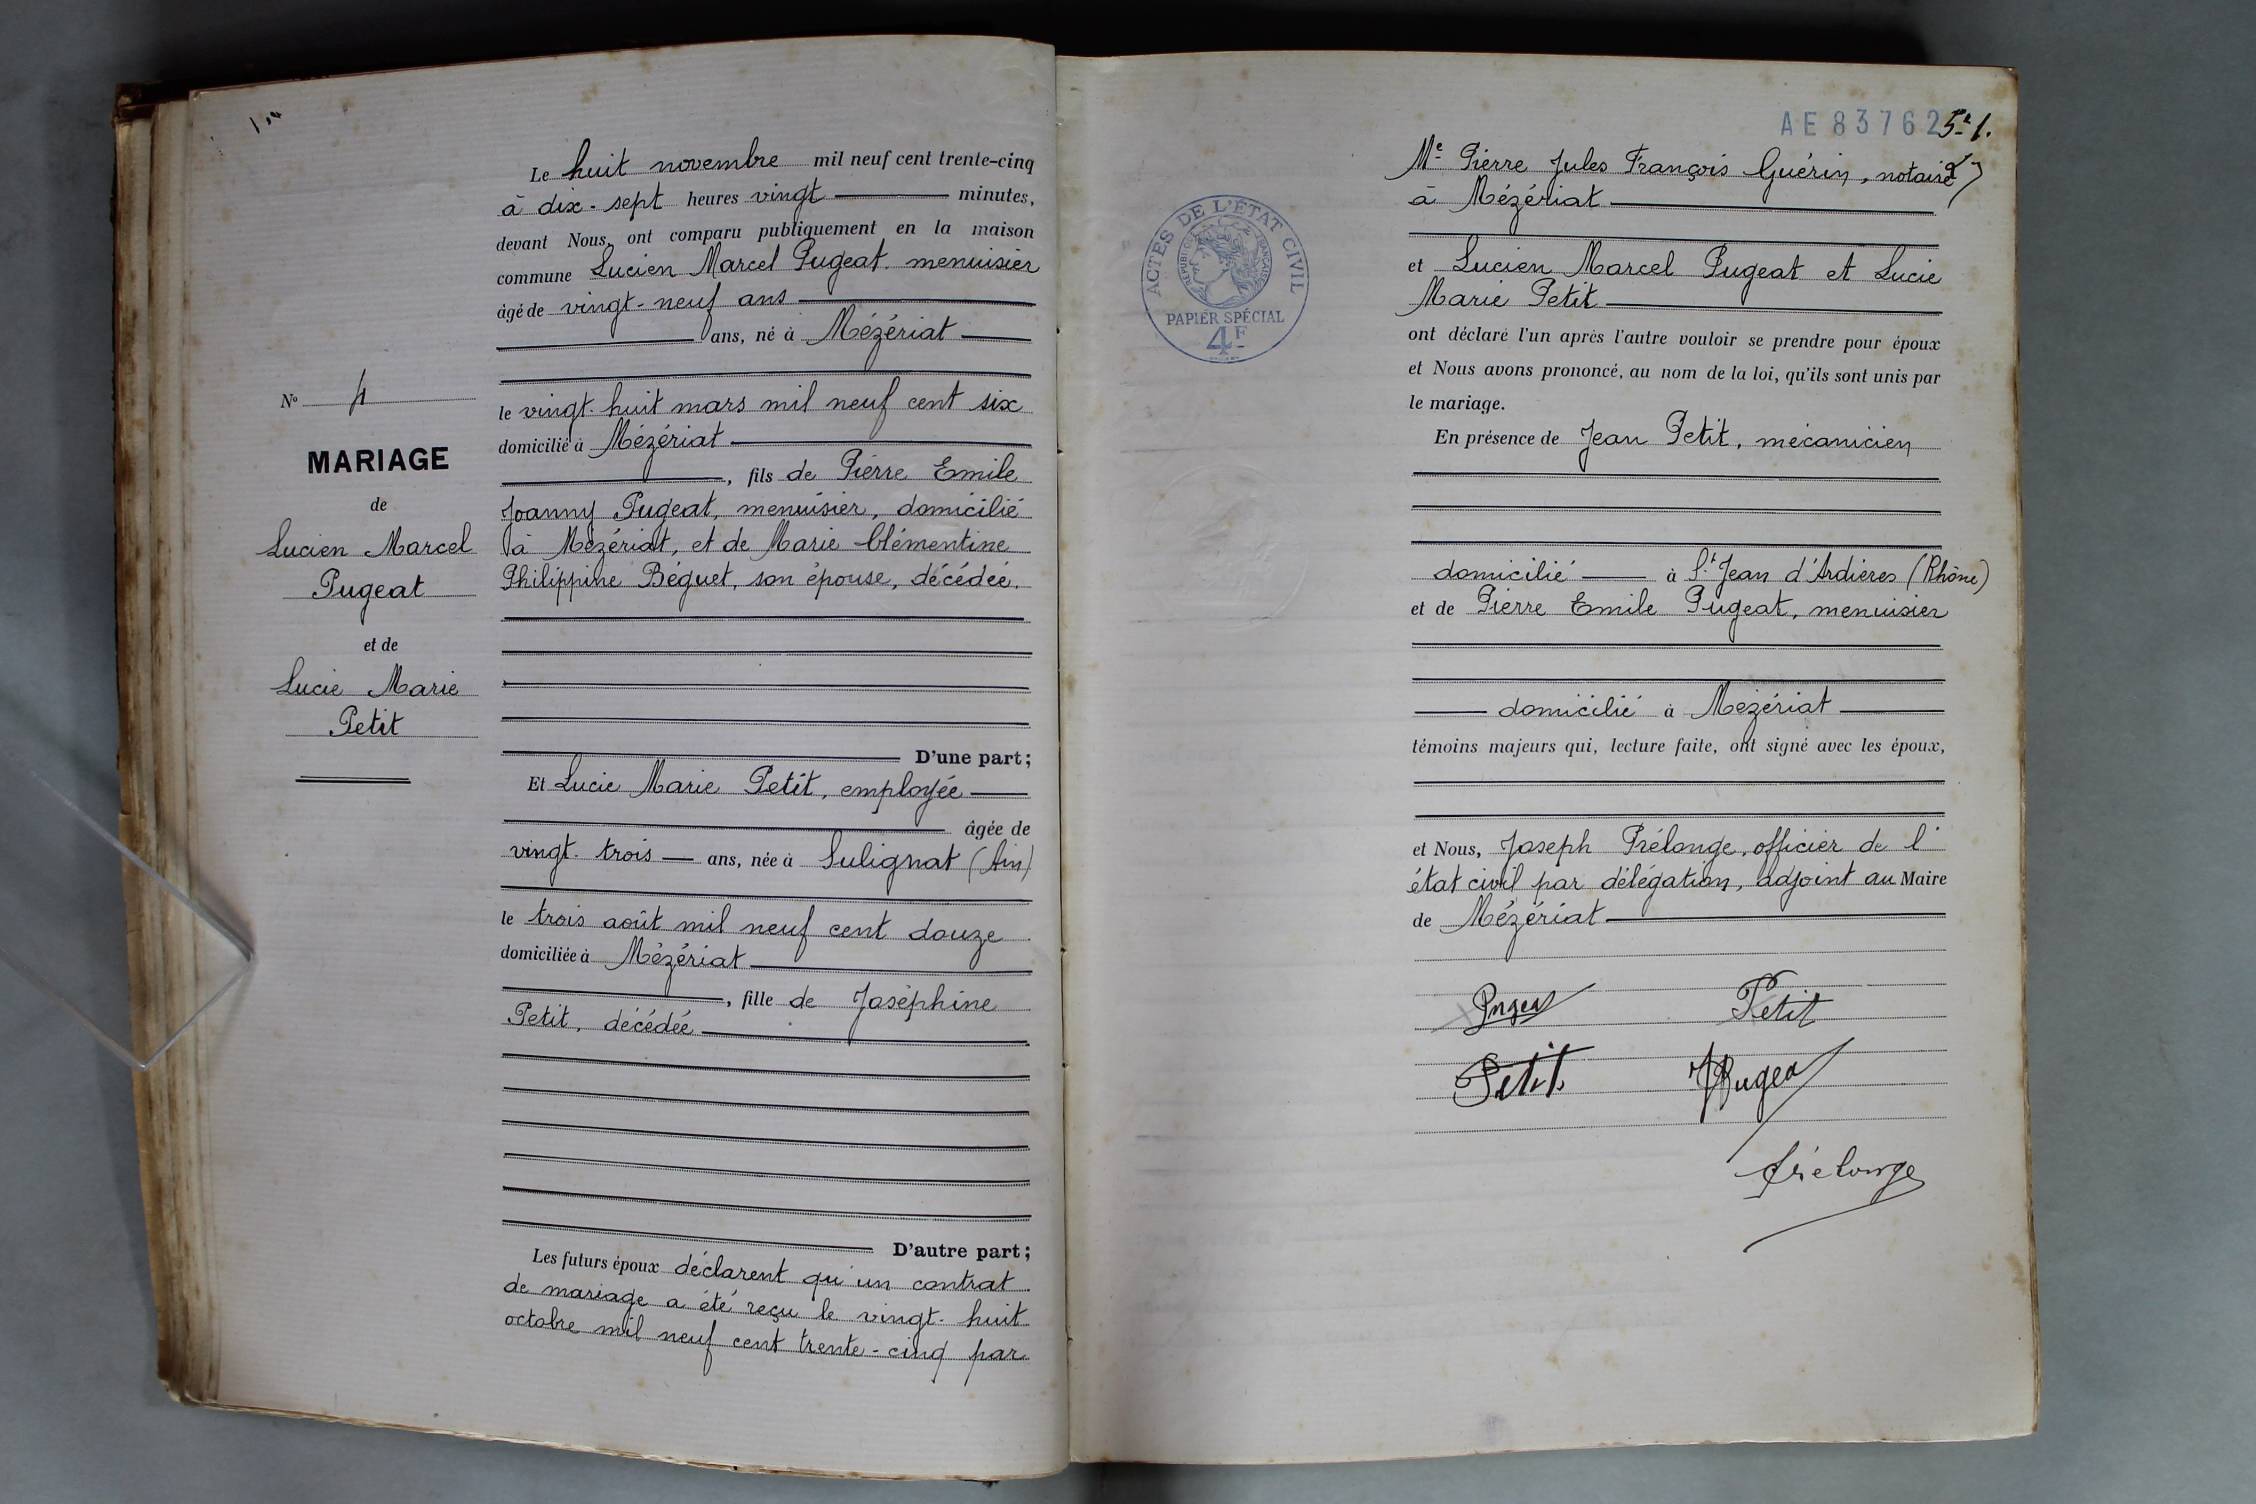 Le huit novembre mil neuf cent trente-cinq
à dix-sept heures vingt minutes,
devant Nous, ont comparu publiquement en la maison
commune Lucien Marcel Pugeat menuisier
âgé de vingt-neuf ans
ans, né à Mézériat
le vingt-huit mars mil neuf cent six
domicilié à Mézériat
, fils de Pierre Emile
Joanny Pugeat, menuisier, domicilié
à Mézériat, et de Marie Clémentine
Philippine Béguet, son épouse, décédée.
D'une part;
Et Lucie Marie Petit, employée
âgée de
vingt-trois ans, née à Sulignat (Ain)
le trois août mil neuf cent douze
domiciliée à Mézériat
, fille de Joséphine
Petit, décédée
D'autre part;
Les futurs époux déclarent qu'un contrat
de mariage a été reçu le vingt-huit
octobre mil neuf cent trente-cinq par
No 4
MARIAGE
de
Lucien Marcel
Pugeat
et de
Lucie Marie
Petit
AE83762
ACTES DE L'ÉTAT CIVIL
RÉPUBLIQUE FRANÇAISE
PAPIER SPÉCIAL
4F
Me Pierre Jules François Guérin, notaire
à Mézériat
et Lucien Marcel Pugeat et Lucie
Marie Petit
ont déclaré l'un après l'autre vouloir se prendre pour époux
et Nous avons prononcé, au nom de la loi, qu'ils sont unis par
le mariage.
En présence de Jean Petit, mécanicien
domicilié à St Jean d'Ardières (Rhône)
et de Pierre Emile Pugeat, menuisier
domicilié à Mézériat
témoins majeurs qui, lecture faite, ont signé avec les époux,
et Nous, Joseph Prélonge, officier de l'
état civil par délégation, adjoint au Maire
de Mézériat
Pugeat Petit
Petit Pugeat
Prélonge